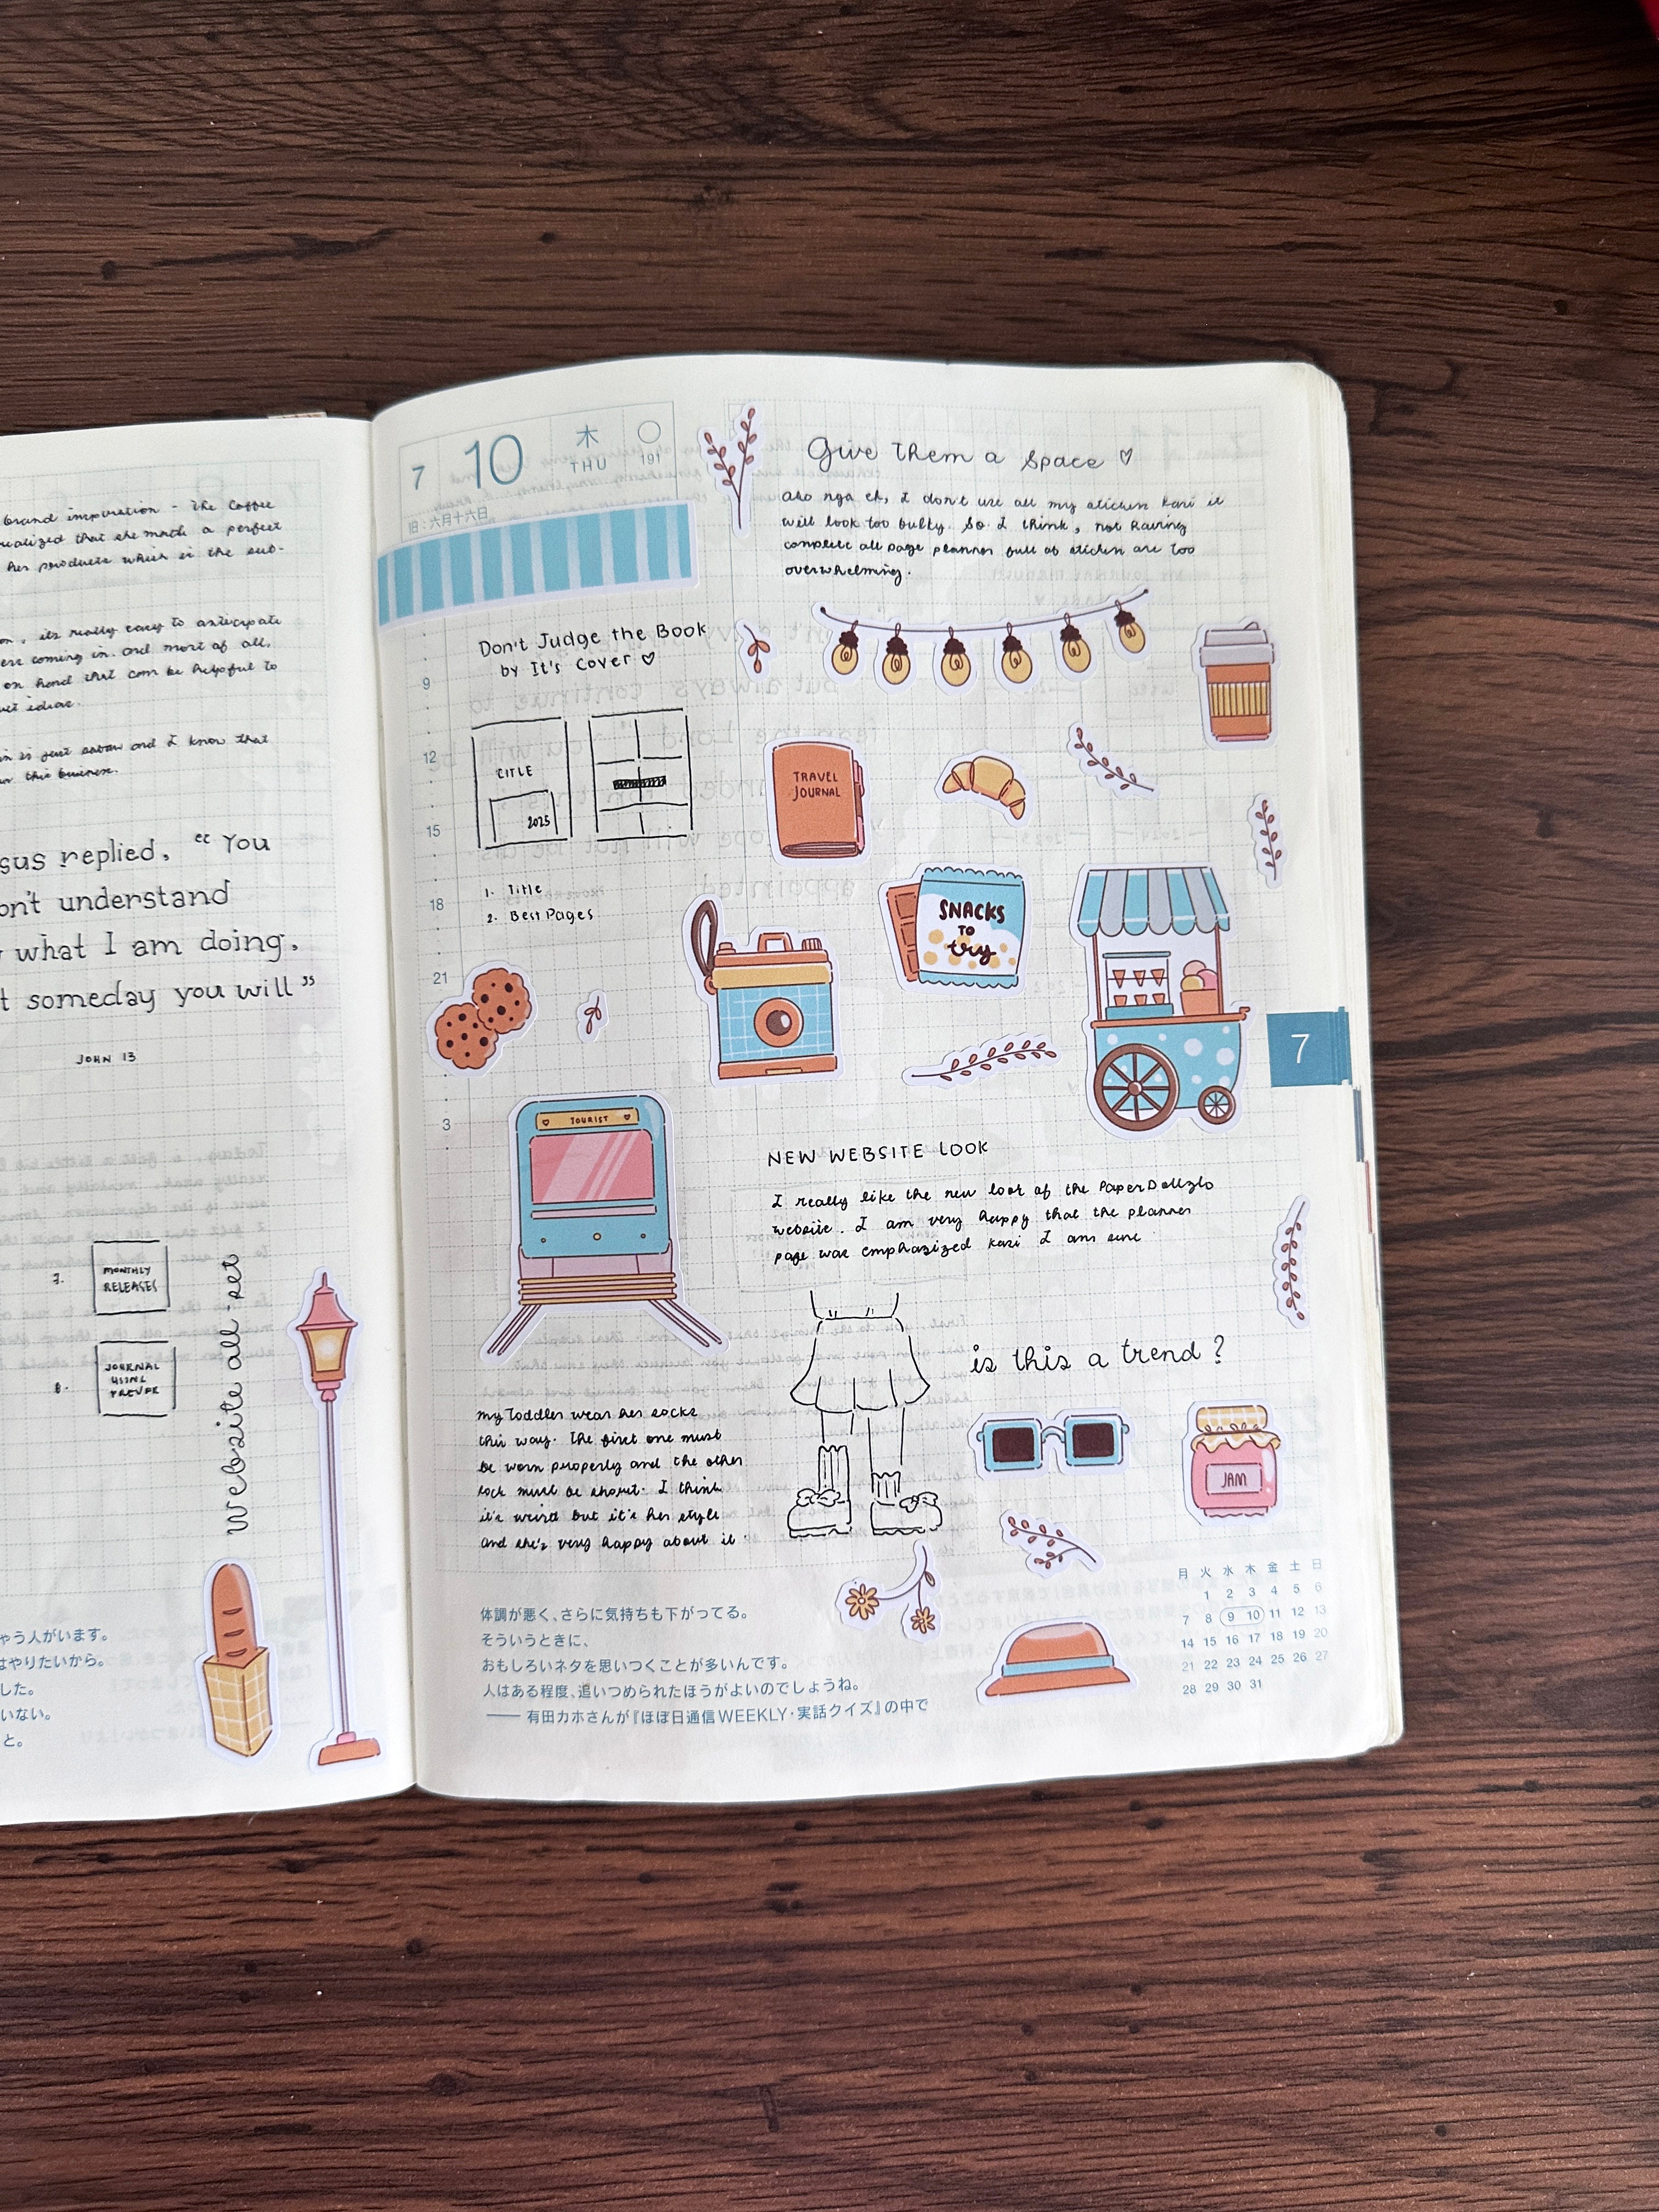 brand inspiration - the coffee
realized that she made a perfect
her products which is the sub-
on, its really easy to anticipate
coming in. and most of all,
on hand that can be helpful to
ideas.
is just and I know that
this business.
sus replied, “You
on't understand
what I am doing.
t someday you will”
JOHN 13
7. MONTHLY
RELEASES
8. JOURNAL
USING
Website all-set
ゃう人がいます。
はやりたいから。
した。
いない。
と。
7 10 木 THU 191
旧:六月十六日
Give them a space ♡
ako nga eh, I don't use all my sticker kasi it
will look too bulky. So I think, not having
complete all page planner full of sticker are too
overwhelming.
Don't Judge the Book
by It's Cover ♡
9
12
15
18
21
3
TITLE
2025
1. Title
2. Best Pages
TRAVEL
JOURNAL
SNACKS
TO
try
7
TOURIST
NEW WEBSITE LOOK
I really like the new look of the PaperDollzlo
website. I am very happy that the planner
page was emphasized kasi I am sure
is this a trend?
my toddler wear her socks
this way. The first one must
be worn properly and the other
sock must be short. I think
it's weird but it's her style
and she's very happy about it.
JAM
体調が悪く、さらに気持ちも下がってる。
そういうときに、
おもしろいネタを思いつくことが多いんです。
人はある程度、追いつめられたほうがよいのでしょうね。
—— 有田カホさんが『ほぼ日通信WEEKLY・実話クイズ』の中で
月 火 水 木 金 土 日
1 2 3 4 5 6
7 8 9 10 11 12 13
14 15 16 17 18 19 20
21 22 23 24 25 26 27
28 29 30 31